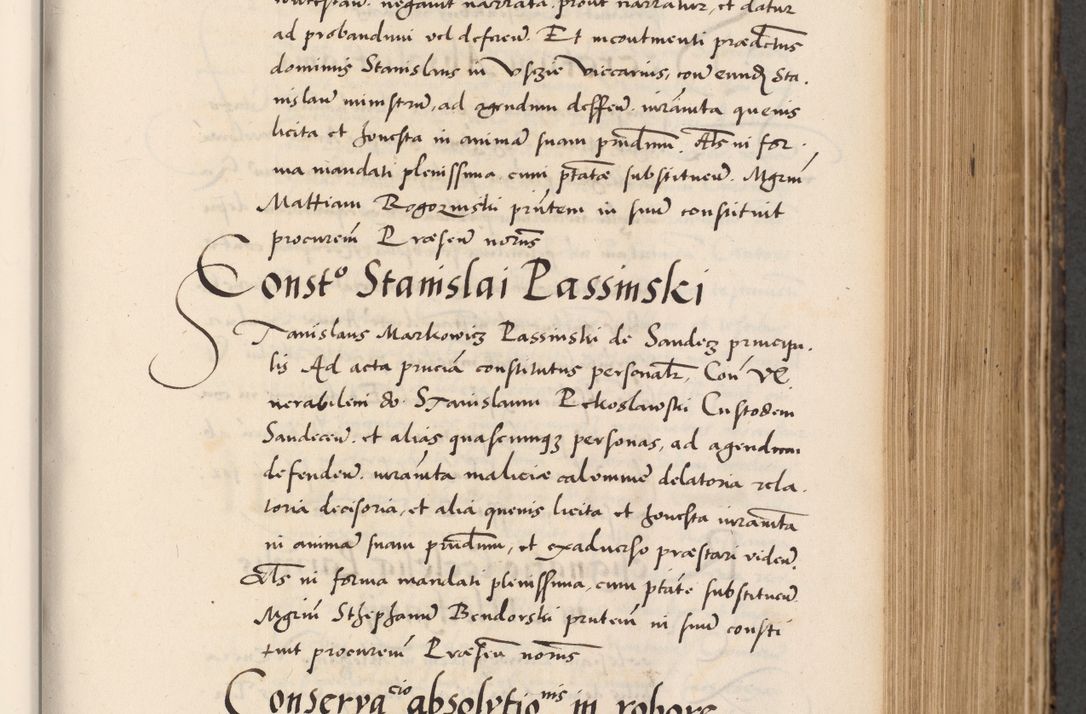 negavit narrata, prout narratur, et datur
ad probandum vel defereñ. Et incontinenti prædictus
dominus Stanislaus in Vszie viccarius, con eundẽ Sta,
nislaũ ministrũ, ad agendum deffeñ. iurãnta quevis
licita et honesta in animã suam prñdum, Als in for,
ma mandati plenissima, cum ptãte substitueñ. Mgrm̃
Mattiam Rogozinski prñtem in suũ constituit
procurem̃ Præseñ notus
Constº Stanislai Passinski
Stanislaus Markowicz Passinski de Sandecz principa,
lis Ad acta pñcia constitutus personalr, Con Ve,
nerabilem do. Stanislaum Pekoslawski Custodem
Sandeceñ. et alias quascumqz personas, ad agendum
defendeñ. iurãnta maliciæ calomniæ delatoria rela,
toria decisoria, et alia quevis licita et honesta iurãnta
in animã suam prñdum, et exadverso præstari videñ.
Als in forma mandati plenissima, cum ptãte substitueñ
Mgrm̃ Sthephanũ Bendorski prñtem in suũ consti
tuit procurem̃ Præseñ notus
Conservacio absolutionis in robore